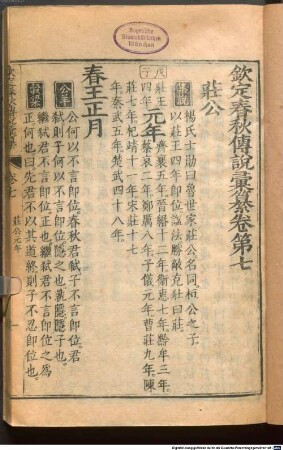 欽定春秋傳說彙纂卷第七
莊公
楊氏士勛曰魯世家莊公名同桓公之子
以莊王四年即位諡法勝敵克壯曰莊
戊子
莊王四年
元年
齊襄五年晉緡十二年衛惠七年黔牟三年
蔡哀二年鄭厲八年子儀元年曹莊九年陳
莊七年杞靖十一年宋莊十七
年秦武五年楚武四十八年
春王正月
公羊
公何以不言即位春秋君弒子不言即位君
弒則子何以不言即位隱之也孰隱隱子也
穀梁
繼弒君不言即位正也繼弒君不言即位之為
正何也曰先君不以其道終則子不忍即位也
卷七
莊公元年
Bayerische
Staatsbibliothek
München